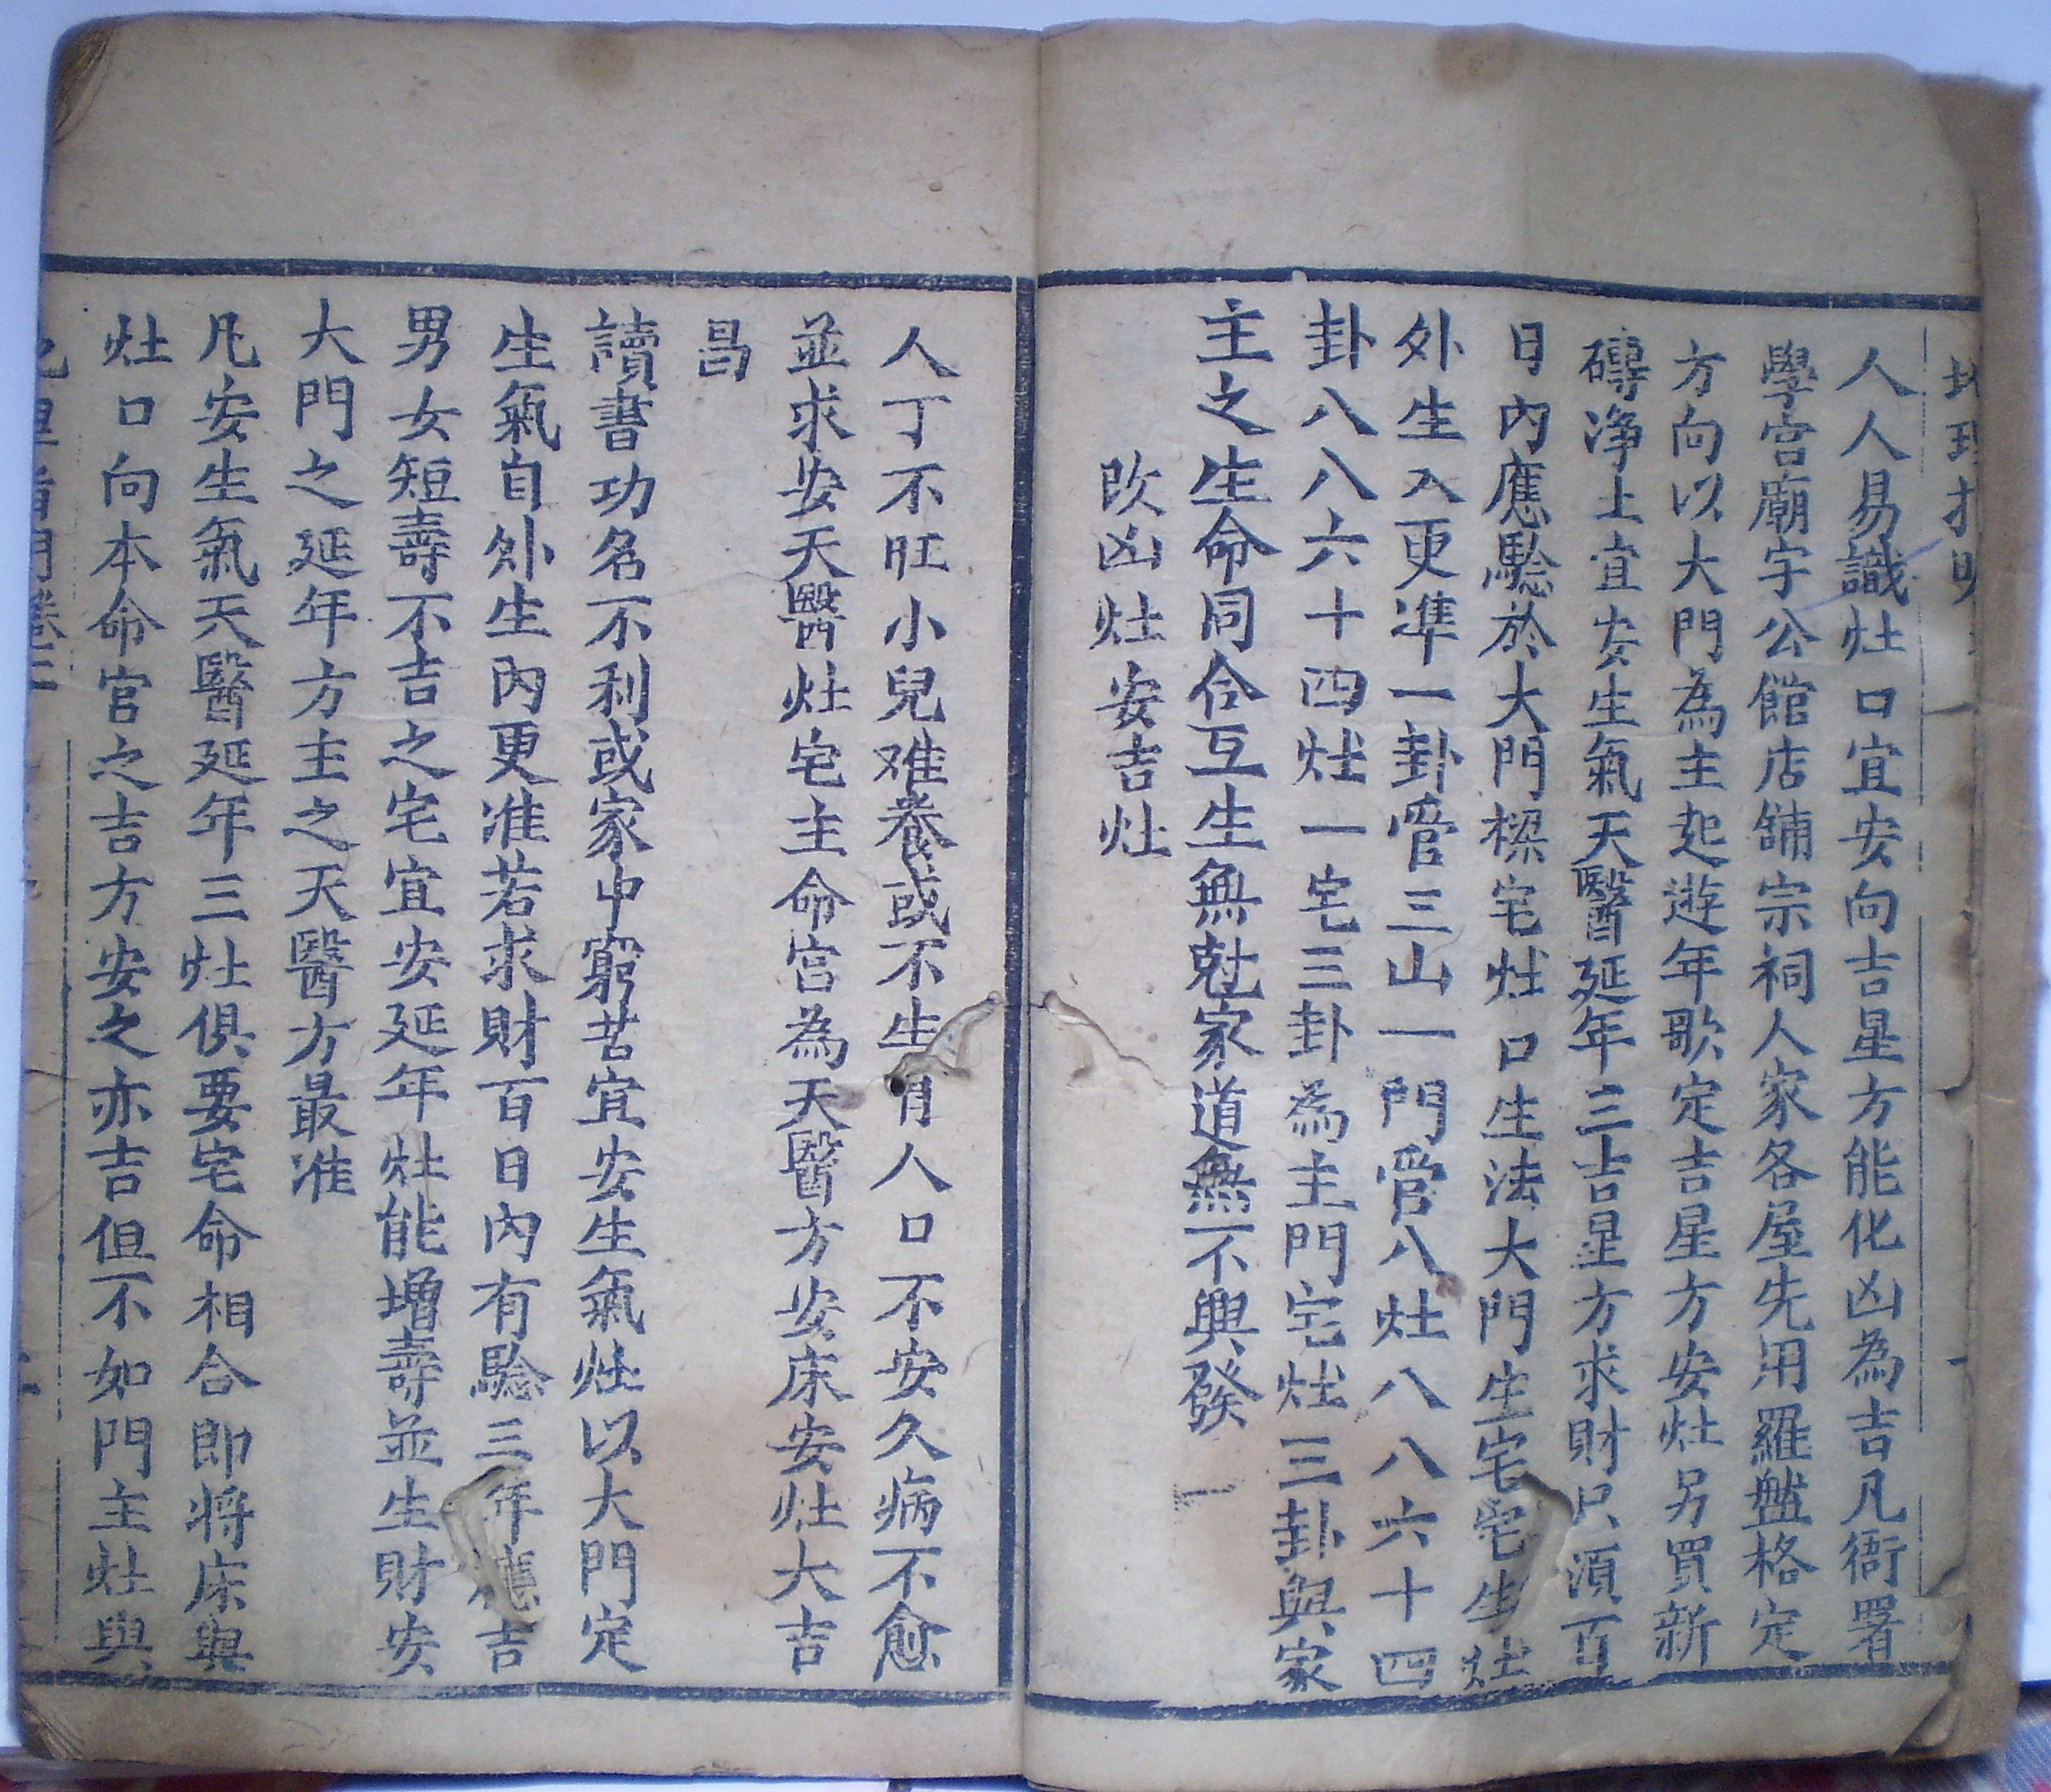 人人易識灶口宜安向吉星方能化凶為吉凡衙署
學宮廟宇公館店舖宗祠人家各屋先用羅盤格定
方向以大門為主起遊年歌定吉星方安灶另買新
磚淨土宜安生氣天醫延年三吉星方求財只須百
日內應騐於大門樑宅灶口生法大門生宅宅生灶
外生入更準一卦管三山一門管八灶八八六十四
卦八八六十四灶一宅三卦為主門宅灶三卦與家
主之生命同合互生無尅家道無不興發
改凶灶安吉灶
人丁不旺小兒难養或不生育人口不安久病不愈
並求安天醫灶宅主命宮為天醫方安床安灶大吉
昌
讀書功名不利或家中窮苦宜安生氣灶以大門定
生氣自外生內更准若求財百日內有騐三年應吉
男女短壽不吉之宅宜安延年灶能增壽並生財安
大門之延年方主之天醫方最准
凡安生氣天醫延年三灶俱要宅命相合即将床與
灶口向本命宮之吉方安之亦吉但不如門主灶與